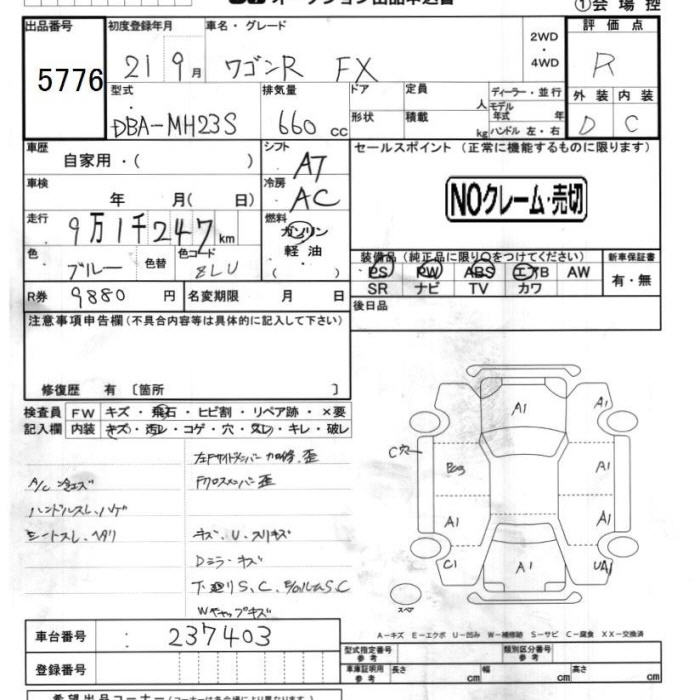 ①会場控
出品番号
5776
初度登録年月
21 9月
車名・グレード
ワゴンR FX
2WD
・
4WD
評価点
R
型式
DBA-MH23S
排気量
660 cc
ドア
定員
人
形状
積載
kg
ディーラー・並行
モデル
年式 年
ハンドル 左・右
外装 内装
D C
車歴
自家用・( )
シフト
AT
セールスポイント (正常に機能するものに限ります)
NOクレーム・売切
車検
年 月( 日)
冷房
AC
走行
9万1千247km
燃料
ガソリン
軽油
( )
色
ブルー
色替
色コード
装備品(純正品に限り○をつけてください)
新車保証書
PS PW ABS エアB AW
SR ナビ TV カワ
有・無
R券 9880 円
名変期限 月 日
後日品
注意事項申告欄(不具合内容等は具体的に記入して下さい)
修復歴 有〔箇所 〕
検査員 FW キズ・飛石・ヒビ割・リペア跡・×要
記入欄 内装 キズ・汚レ・コゲ・穴・スレ・キレ・破レ
左Fサイドメンバー 加修.歪
Fクロスメンバー歪
A/C 冷エズ
ハンドルスレ.ハゲ
シートスレ.ヘタリ
キズ.U.スリキズ
Dミラーキズ
下廻りS.C.
Wキャップキズ
A1
A1
C穴
A1
A1
A1
C1
A1
UA1
スペア
A-キズ E-エクボ U-凹み W-補修跡 S-サビ C-腐食 XX-交換済
車台番号 : 237403
登録番号
型式指定番号
参考
類別区分番号
参考
車庫証明用
参考
長さ cm
幅 cm
高さ cm